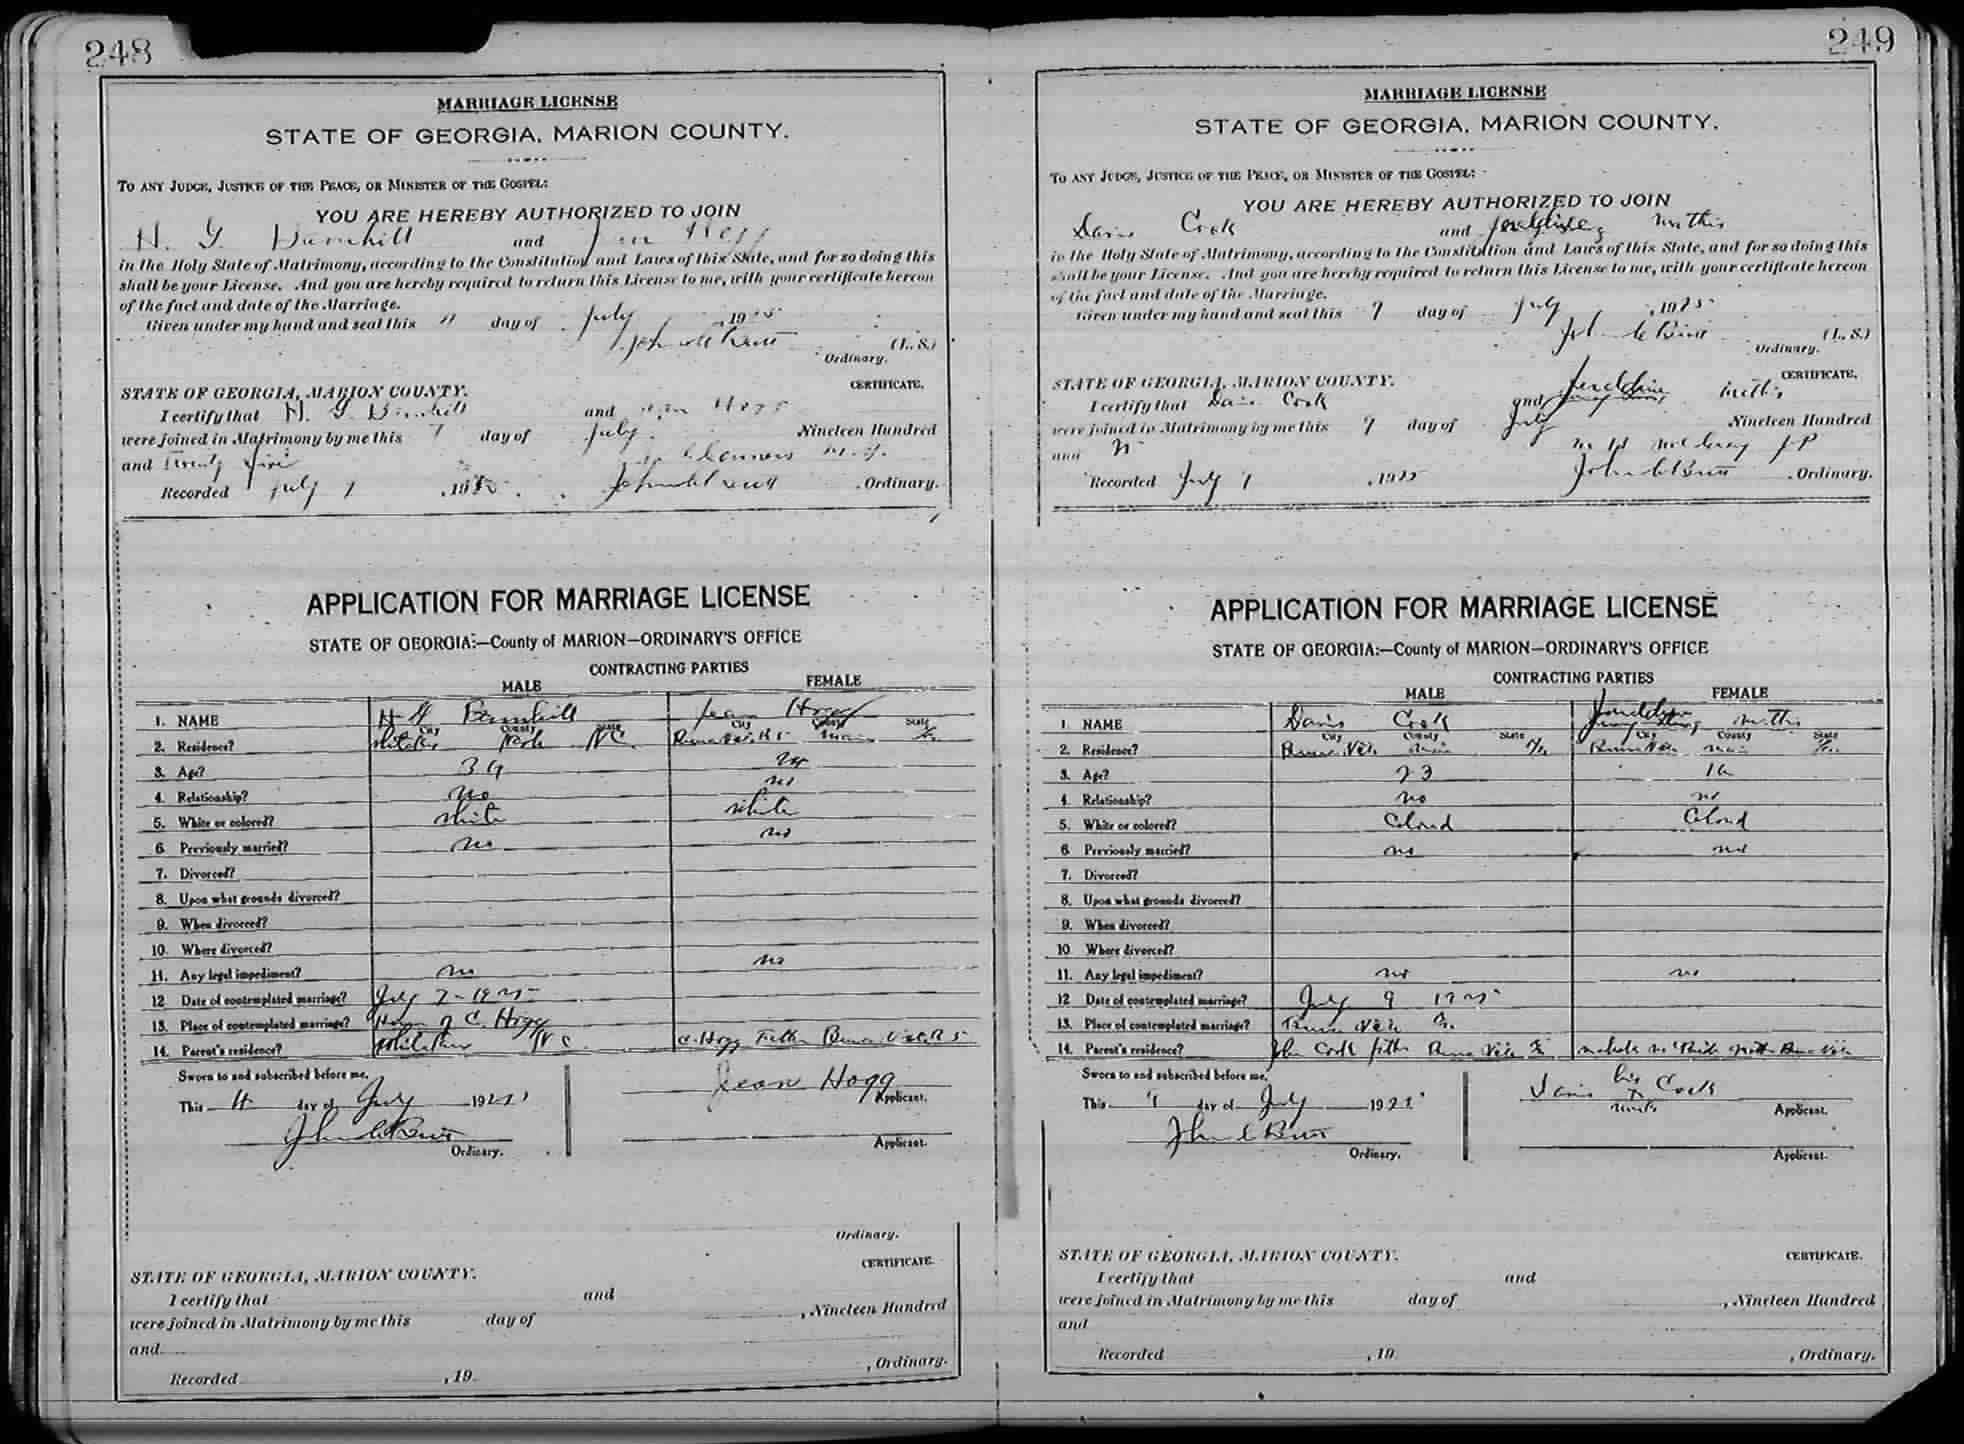 248
MARRIAGE LICENSE
STATE OF GEORGIA, MARION COUNTY.
TO ANY JUDGE, JUSTICE OF THE PEACE, OR MINISTER OF THE GOSPEL:
YOU ARE HEREBY AUTHORIZED TO JOIN
H. G. Barnhill and Jean Hogg
in the Holy State of Matrimony, according to the Constitution and Laws of this State, and for so doing this
shall be your License. And you are hereby required to return this License to me, with your certificate hereon
of the fact and date of the Marriage.
Given under my hand and seal this day of July, 1925
John C Butt (L. S.)
Ordinary.
STATE OF GEORGIA, MARION COUNTY. CERTIFICATE.
I certify that H. G. Barnhill and Jean Hogg
were joined in Matrimony by me this 7 day of July. Nineteen Hundred
and Twenty five M. G.
Recorded July 7, 1925. John C Butt, Ordinary.
APPLICATION FOR MARRIAGE LICENSE
STATE OF GEORGIA:—County of MARION—ORDINARY'S OFFICE
CONTRACTING PARTIES
MALE FEMALE
1. NAME H G Barnhill Jean Hogg
City County State City County State
2. Residence? N C Buena Vista R 5 Ga
3. Age? 39
4. Relationship? no no
5. White or colored? white white
6 Previously married? no no
7. Divorced?
8. Upon what grounds divorced?
9. When divorced?
10. Where divorced?
11. Any legal impediment? no no
12 Date of contemplated marriage? July 7 - 1925
13. Place of contemplated marriage? Home of C. Hogg
14. Parent's residence? N C C. Hogg Father Buena Vista R 5
Sworn to and subscribed before me,
This 4 day of July 1925 Jean Hogg
Applicant.
John C Butt
Ordinary. Applicant.
Ordinary.
STATE OF GEORGIA, MARION COUNTY. CERTIFICATE.
I certify that and
were joined in Matrimony by me this day of , Nineteen Hundred
and
Recorded , 19 , Ordinary.
249
MARRIAGE LICENSE
STATE OF GEORGIA, MARION COUNTY.
TO ANY JUDGE, JUSTICE OF THE PEACE, OR MINISTER OF THE GOSPEL:
YOU ARE HEREBY AUTHORIZED TO JOIN
Davis Cook and Mathis
in the Holy State of Matrimony, according to the Constitution and Laws of this State, and for so doing this
shall be your License. And you are hereby required to return this License to me, with your certificate hereon
of the fact and date of the Marriage.
Given under my hand and seal this 9 day of July, 1925
John C Butt (L. S.)
Ordinary.
STATE OF GEORGIA, MARION COUNTY. CERTIFICATE.
I certify that Davis Cook and Mathis
were joined in Matrimony by me this 9 day of July Nineteen Hundred
and J P
Recorded July, 1925 John C Butt, Ordinary.
APPLICATION FOR MARRIAGE LICENSE
STATE OF GEORGIA:—County of MARION—ORDINARY'S OFFICE
CONTRACTING PARTIES
MALE FEMALE
1. NAME Davis Cook Mathis
City County State City County State
2. Residence? Buena Vista Ga Buena Vista Ga
3. Age? 23
4. Relationship? no no
5. White or colored? Colored Colored
6 Previously married? no no
7. Divorced?
8. Upon what grounds divorced?
9. When divorced?
10 Where divorced?
11. Any legal impediment? no no
12 Date of contemplated marriage? July 9 1925
13. Place of contemplated marriage? Buena Vista Ga.
14. Parent's residence? John Cook father Buena Vista Ga Buena Vista
Sworn to and subscribed before me,
This 9 day of July 1925
his
Davis x Cook
mark Applicant.
John C Butt
Ordinary. Applicant.
STATE OF GEORGIA, MARION COUNTY. CERTIFICATE.
I certify that and
were joined in Matrimony by me this day of , Nineteen Hundred
and
Recorded , 19 , Ordinary.